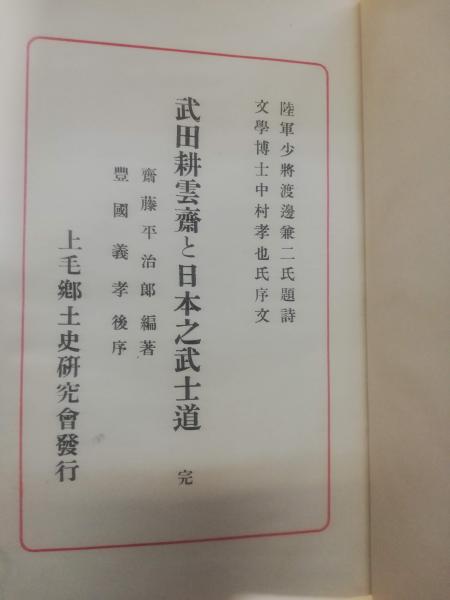 陸軍少將渡邊兼二氏題詩
文學博士中村孝也氏序文
武田耕雲齋と日本之武士道 完
齋藤平治郎編著
豐國義孝後序
上毛鄕土史硏究會發行